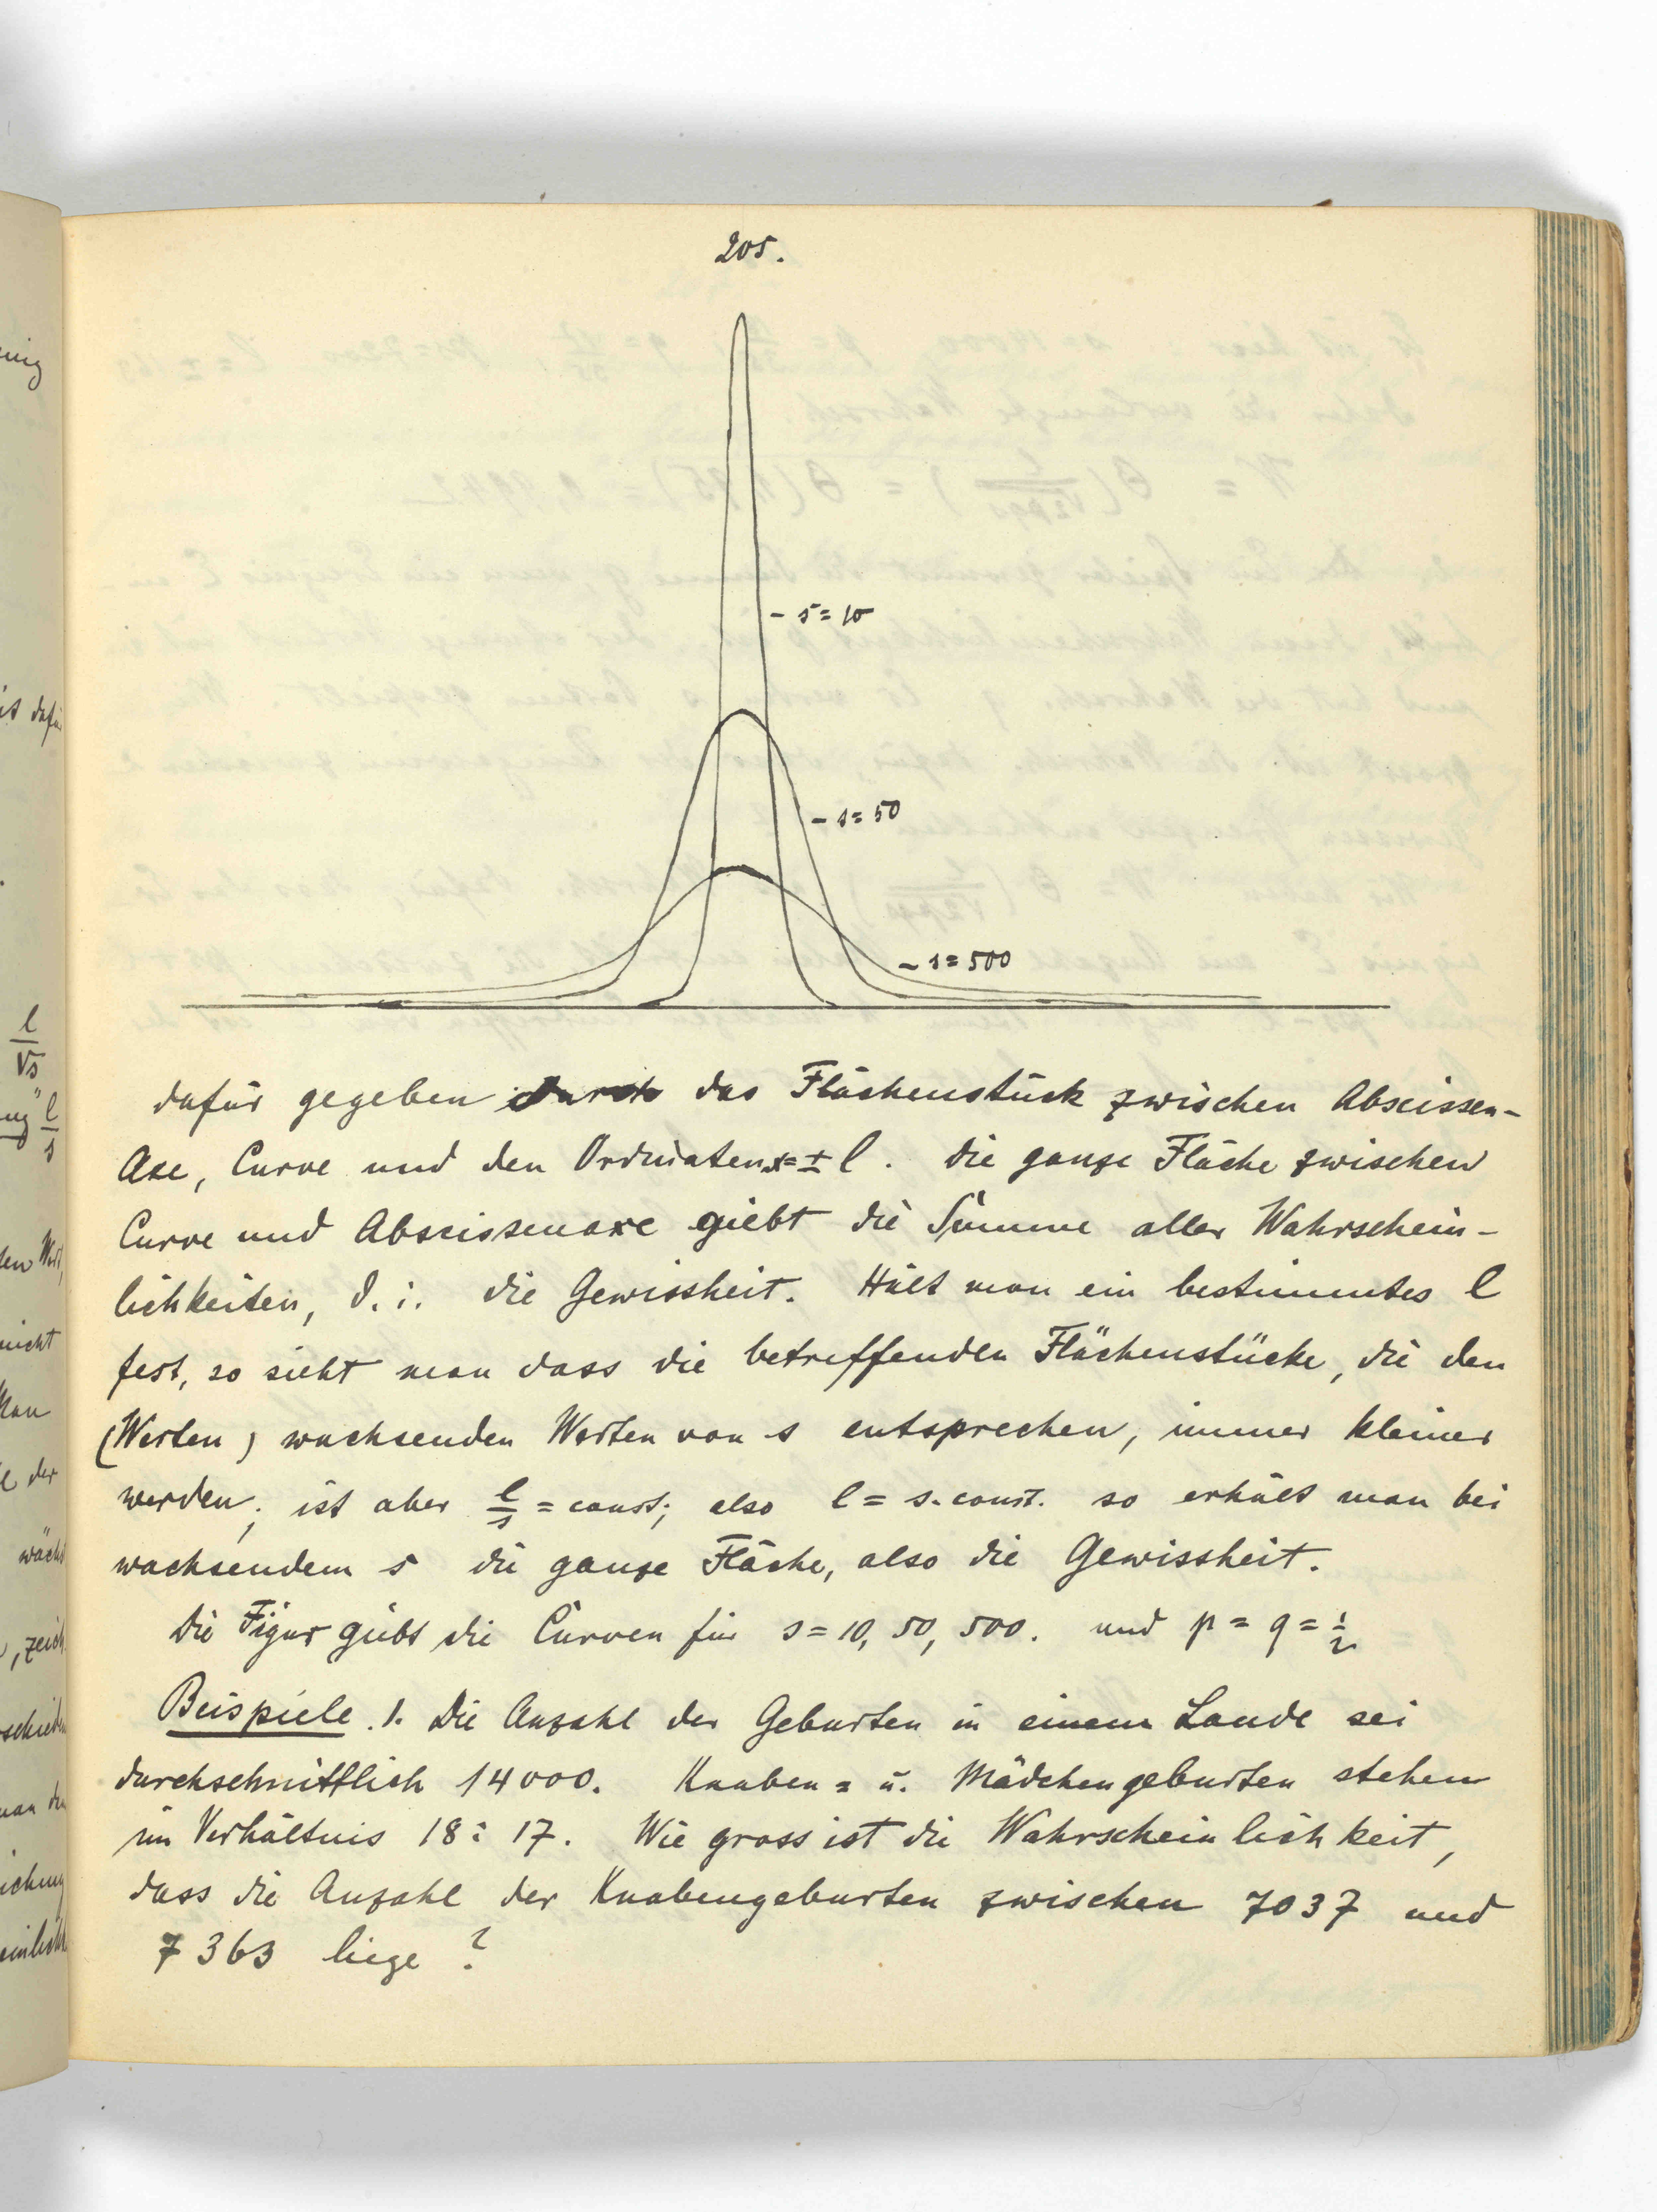 205.
- s = 10
- s = 50
- s = 500
dafür gegeben durch das Flächenstück zwischen Abscissen-
Axe, Curve und den Ordinaten x = ± l. die ganze Fläche zwischen
Curve und Abscissenaxe giebt die Summe aller Wahrschein-
lichkeiten, d. i. die Gewissheit. Hält man ein bestimmtes l
fest, so sieht man dass die betreffenden Flächenstücke, die den
(Werten) wachsenden Werten von s entsprechen, immer kleiner
werden; ist aber l/s = const; also l = s. const. so erhält man bei
wachsendem s die ganze Fläche, also die Gewissheit.
Die Figur giebt die Curven für s = 10, 50, 500. und p = q = 1/2
Beispiele. 1. Die Anzahl der Geburten in einem Lande sei
durchschnittlich 14000. Knaben = u. Mädchengeburten stehen
im Verhältnis 18 : 17. Wie gross ist die Wahrscheinlichkeit,
dass die Anzahl der Knabengeburten zwischen 7037 und
7363 liege?
nig
l/√s
l/s
nicht
der